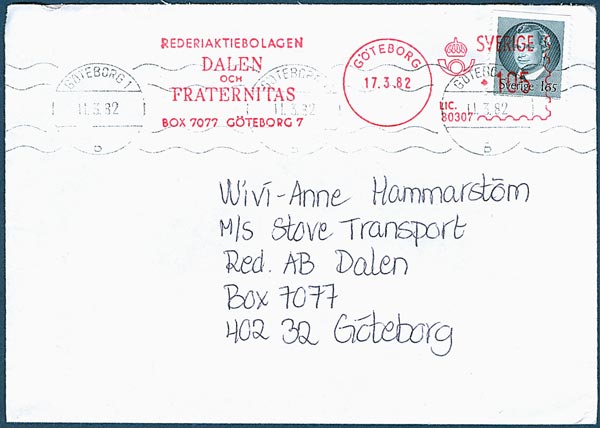 REDERIAKTIEBOLAGEN
DALEN
OCH
FRATERNITAS
BOX 7077 GÖTEBORG 7
GÖTEBORG
17.3.82
SVERIGE
105
LIC.
80307
Sverige 165
GÖTEBORG 1
11.3.82
b
11.3.82
GÖTEBORG
11.3.82
B
Wivi-Anne Hammarstöm
M/s Stove Transport
Red. AB Dalen
Box 7077
402 32 Göteborg